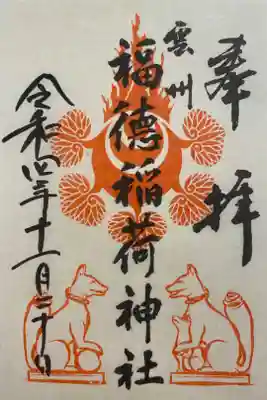 奉拝
雲州
福徳稲荷神社
令和四年十一月三十日